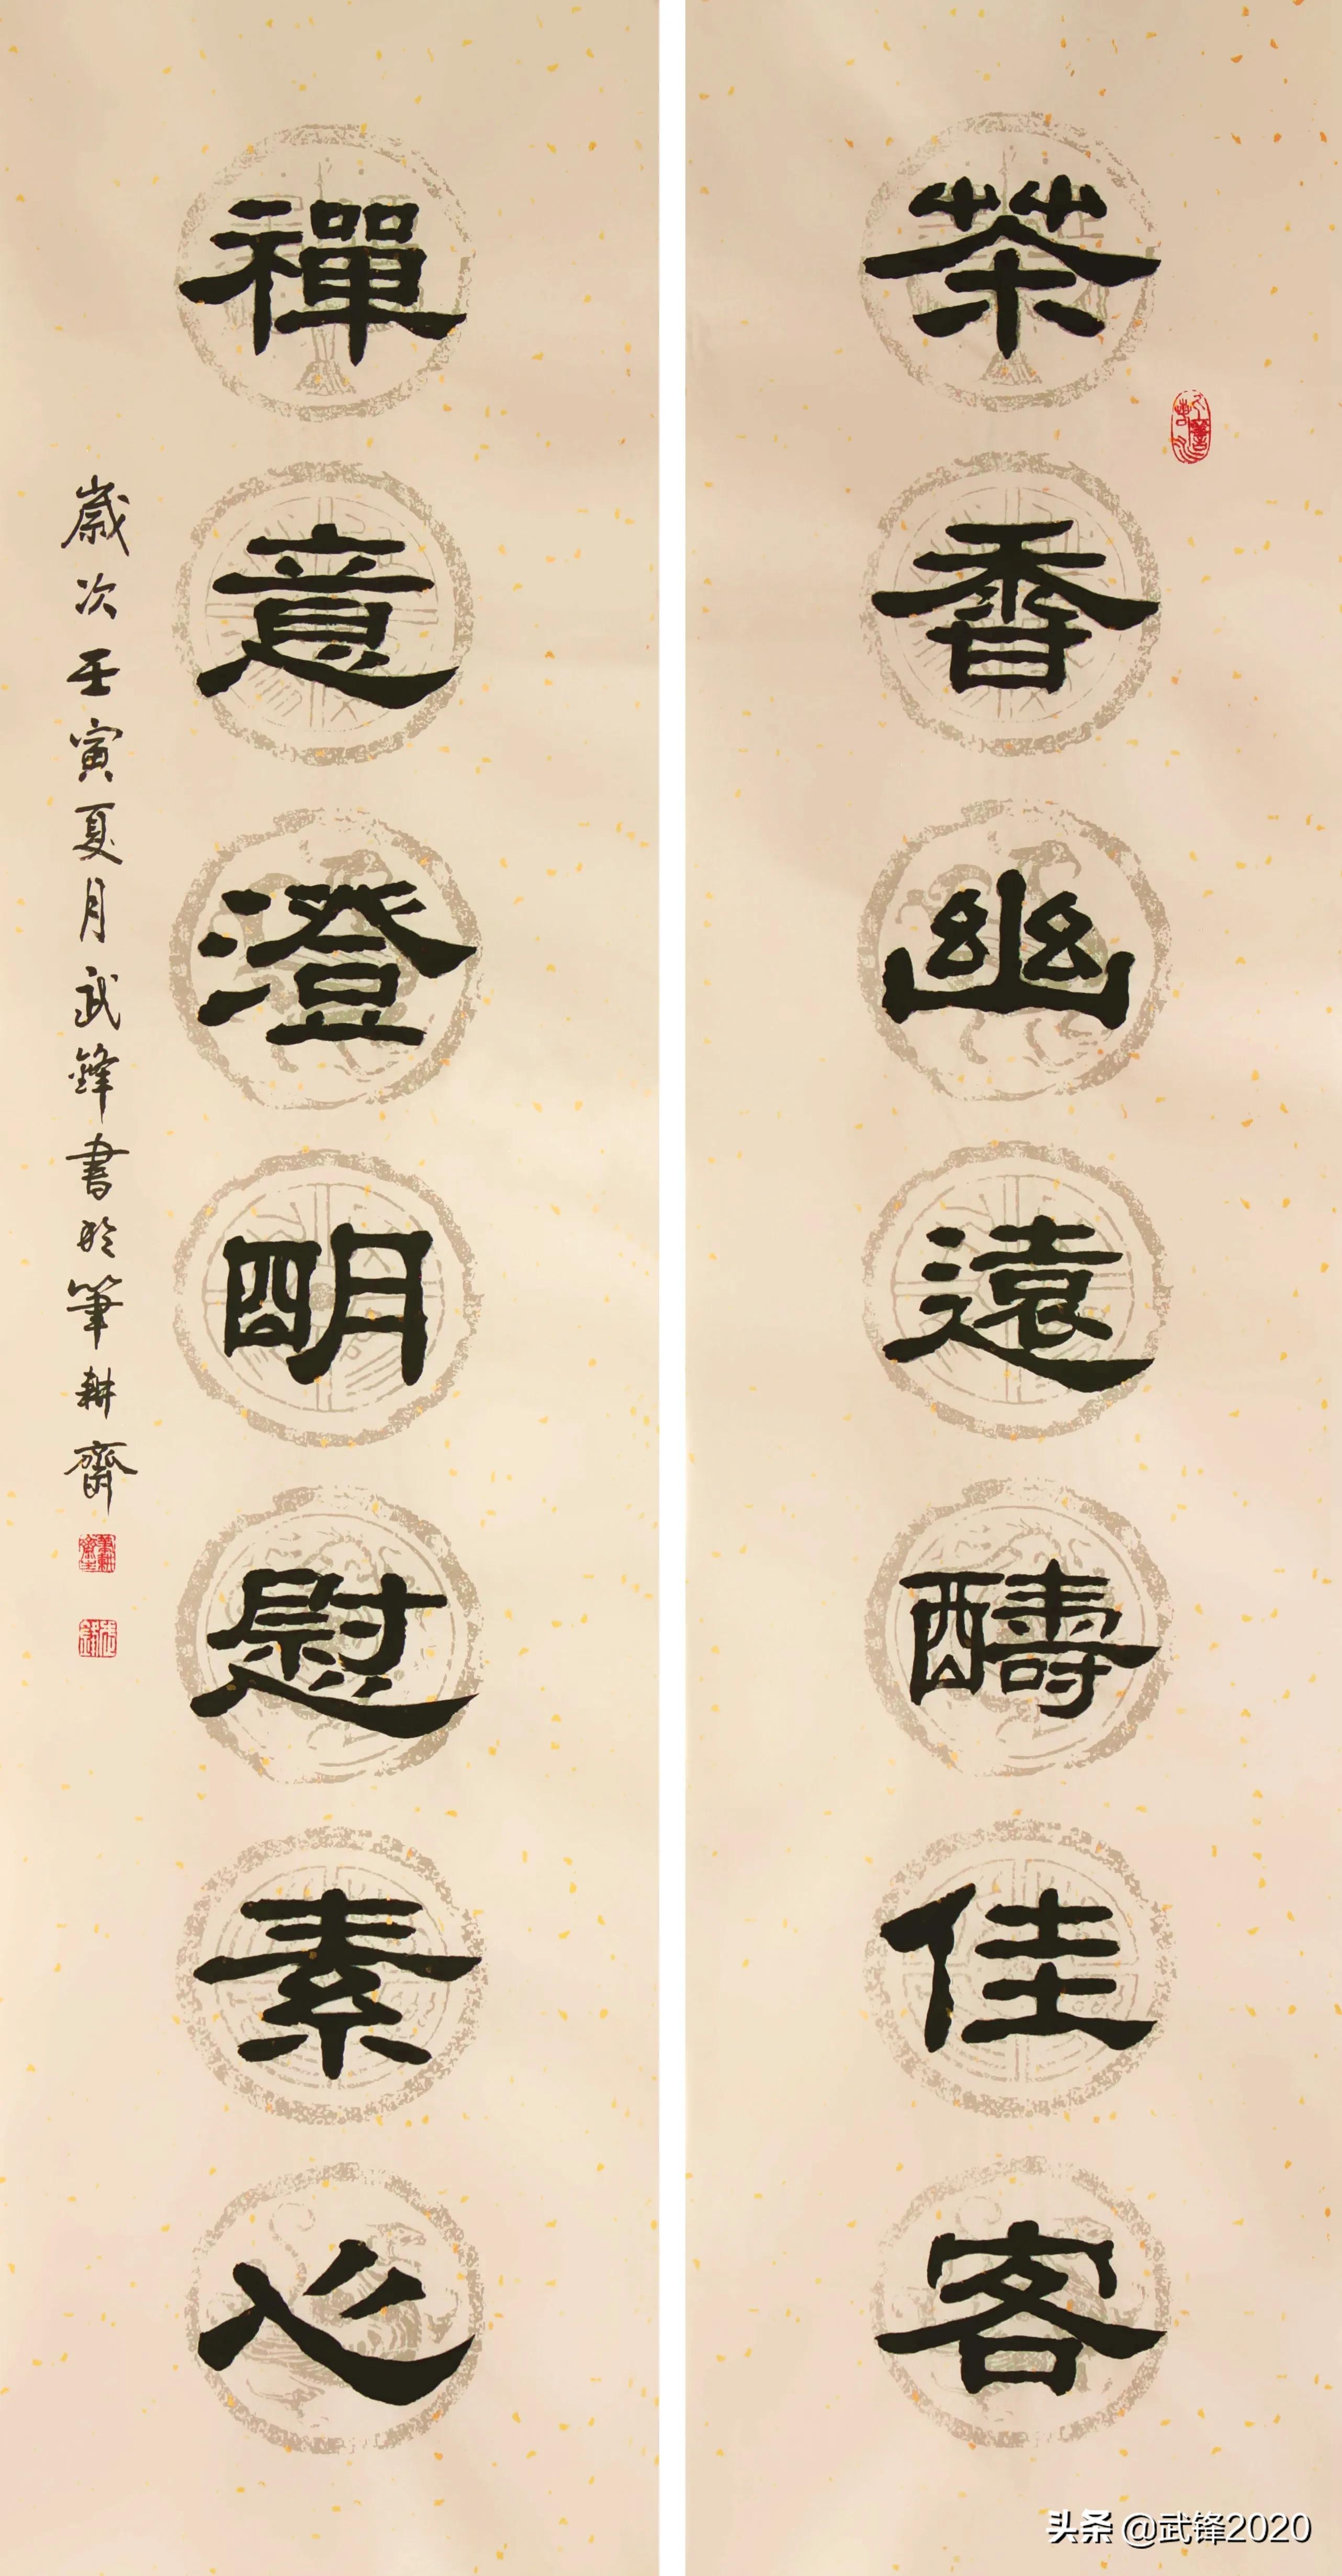 茶香幽遠醻佳客
禪意澄明慰素心
歲次壬寅夏月武鋒書於筆耕齋
头条 @武锋2020